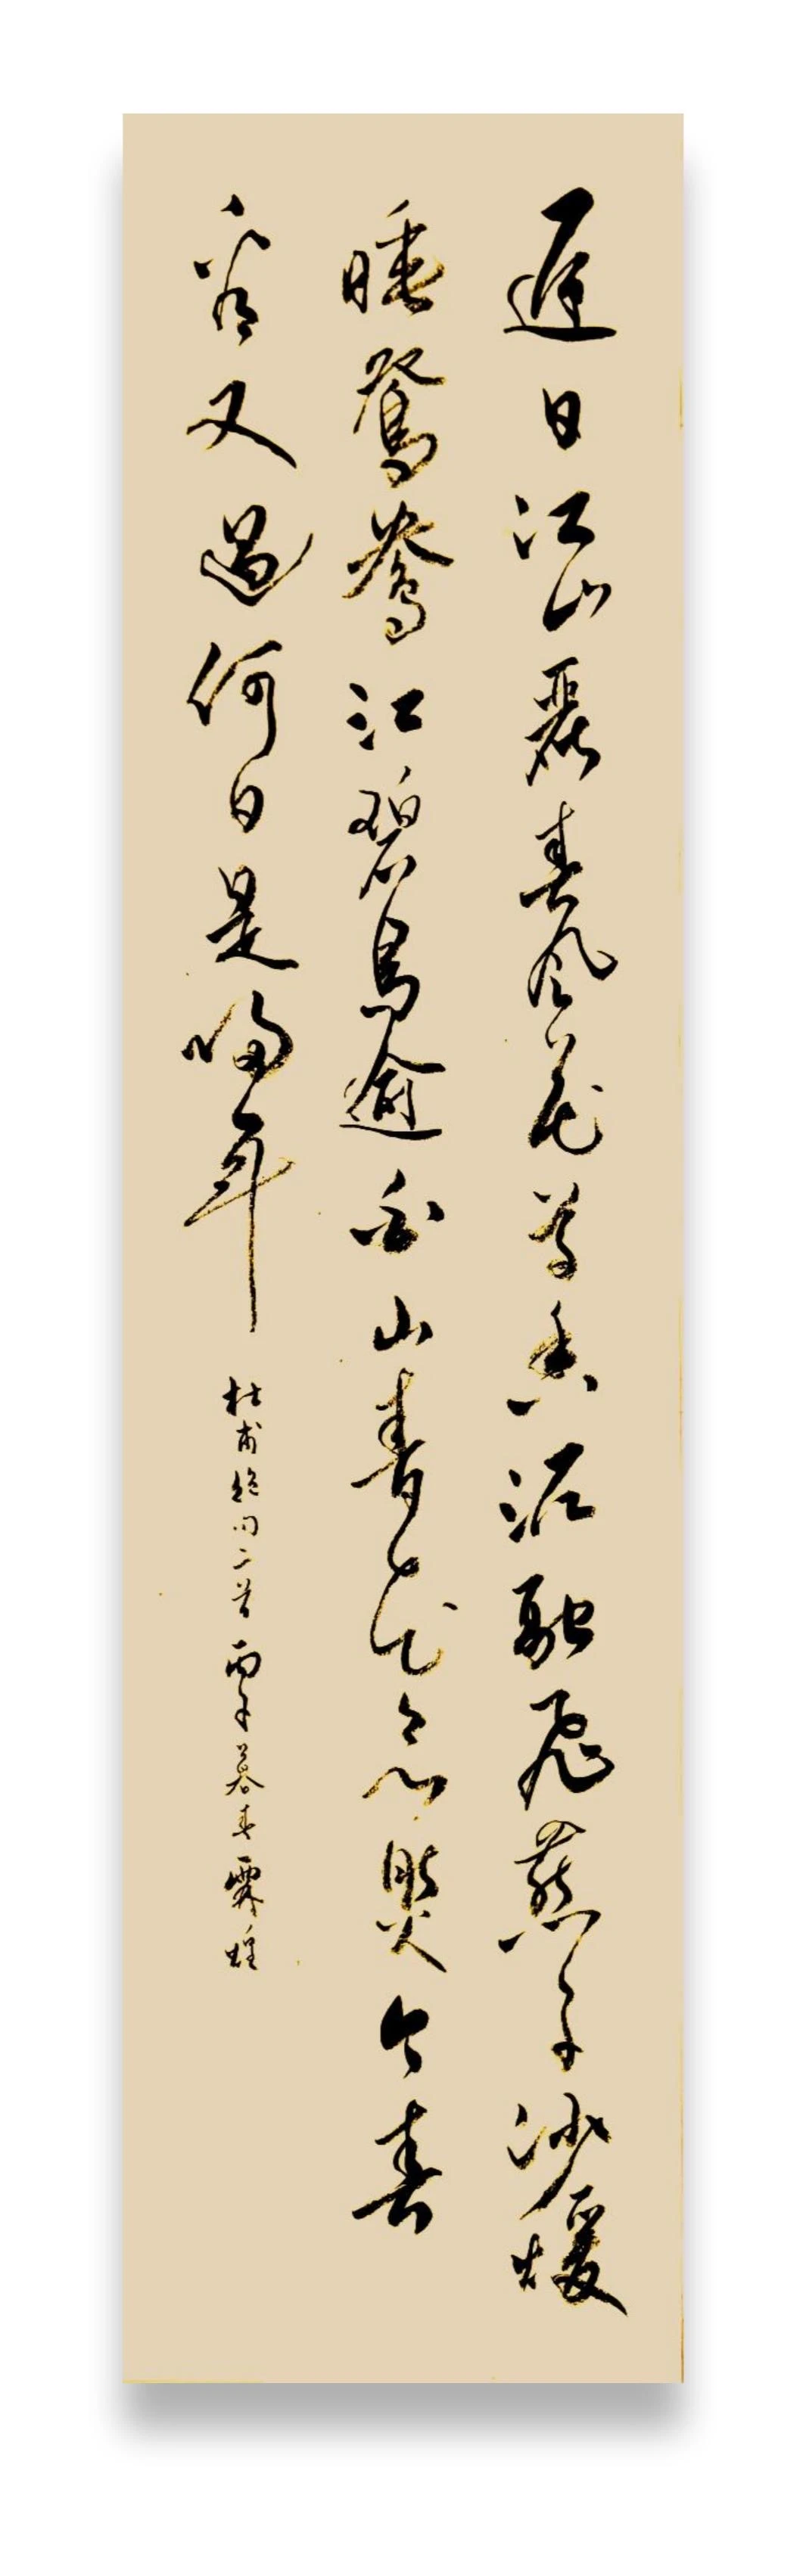 遲日江山麗春風花草香泥融飛燕子沙煖
睡鴛鴦江碧鳥逾白山青花欲然今春
看又過何日是歸年
杜甫絕句二首 丙午暮春 霖煌